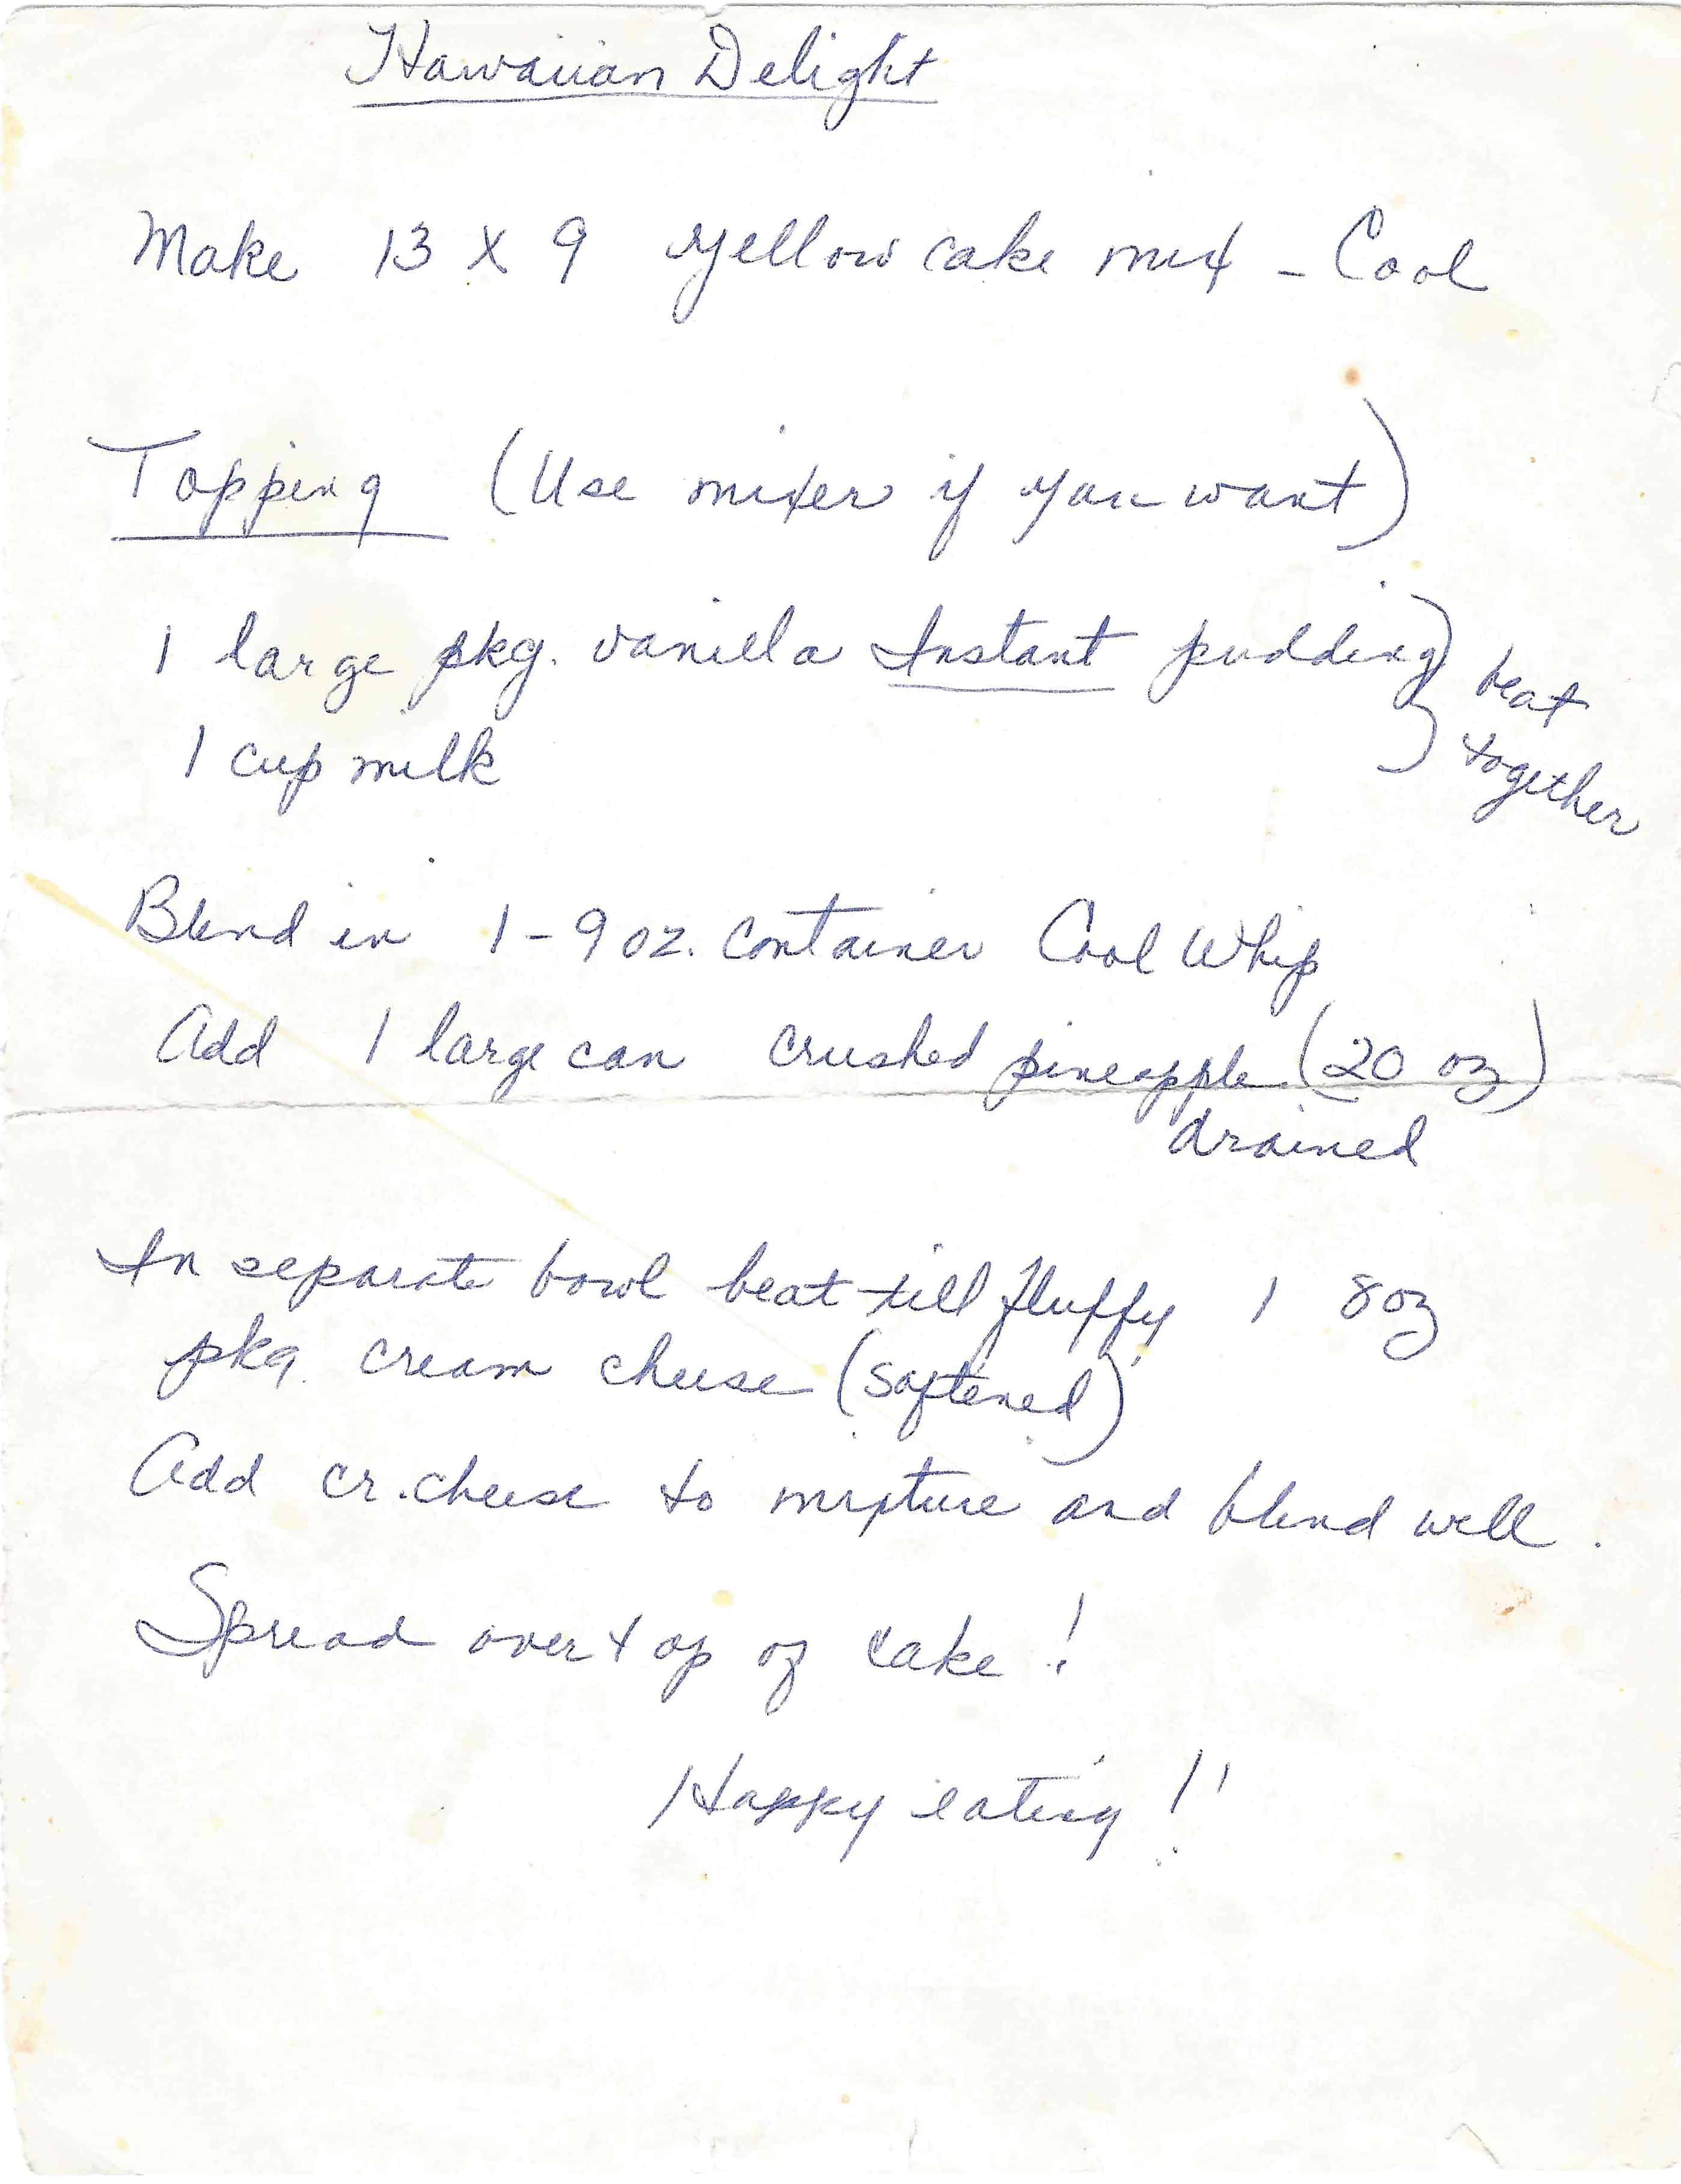 Hawaiian Delight
Make 13 X 9 yellow cake mix - Cool
Topping (Use mixer if you want)
1 large pkg. vanilla Instant pudding } beat
1 cup milk } together
Blend in 1-9 oz. container Cool Whip
Add 1 large can crushed pineapple (20 oz)
drained
In separate bowl beat till fluffy 1 8oz
pkg. cream cheese (softened)
Add cr. cheese to mixture and blend well.
Spread over top of cake!
Happy eating!!